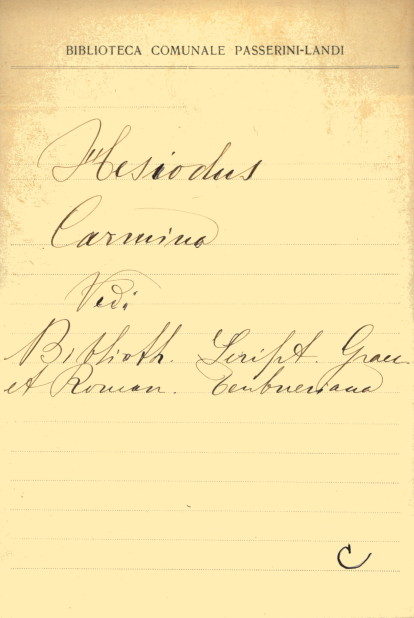 BIBLIOTECA COMUNALE PASSERINI-LANDI
Hesiodus
Carmina
Vedi
Biblioth. Script. Graec
et Roman. Teubneriana
C